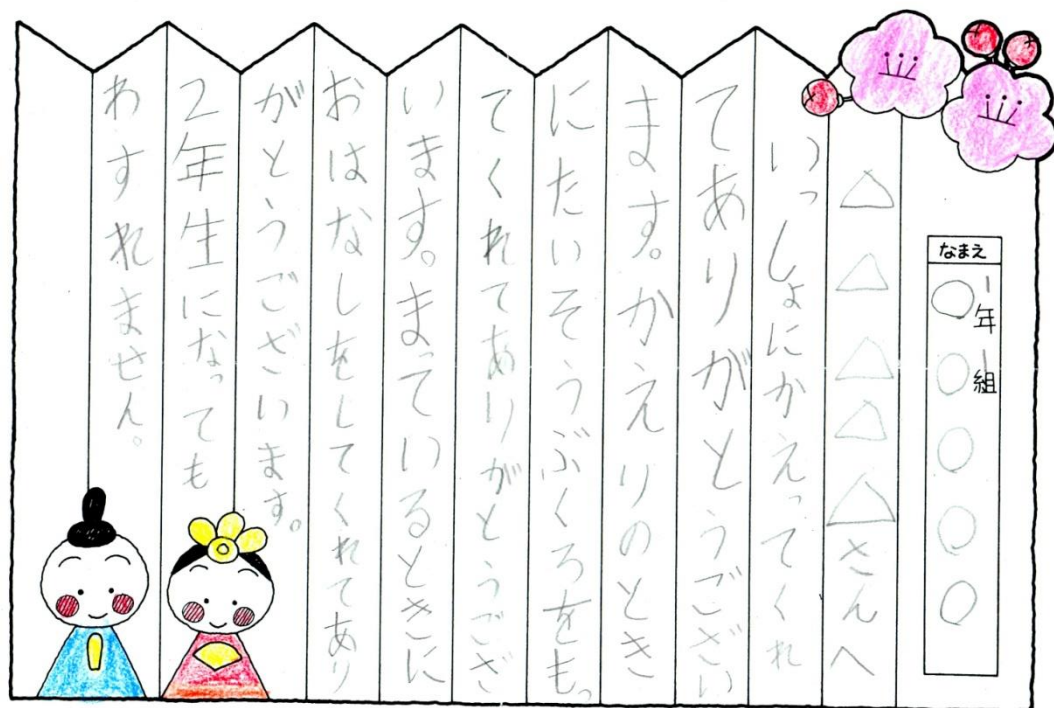 なまえ
1年1組
○○○○○
△△△△△さんへ
いっしょにかえってくれ
てありがとうござい
ます。かえりのとき
にたいそうぶくろをもっ
てくれてありがとうござ
います。まっているときに
おはなしをしてくれてあり
がとうございます。
2年生になっても
わすれません。